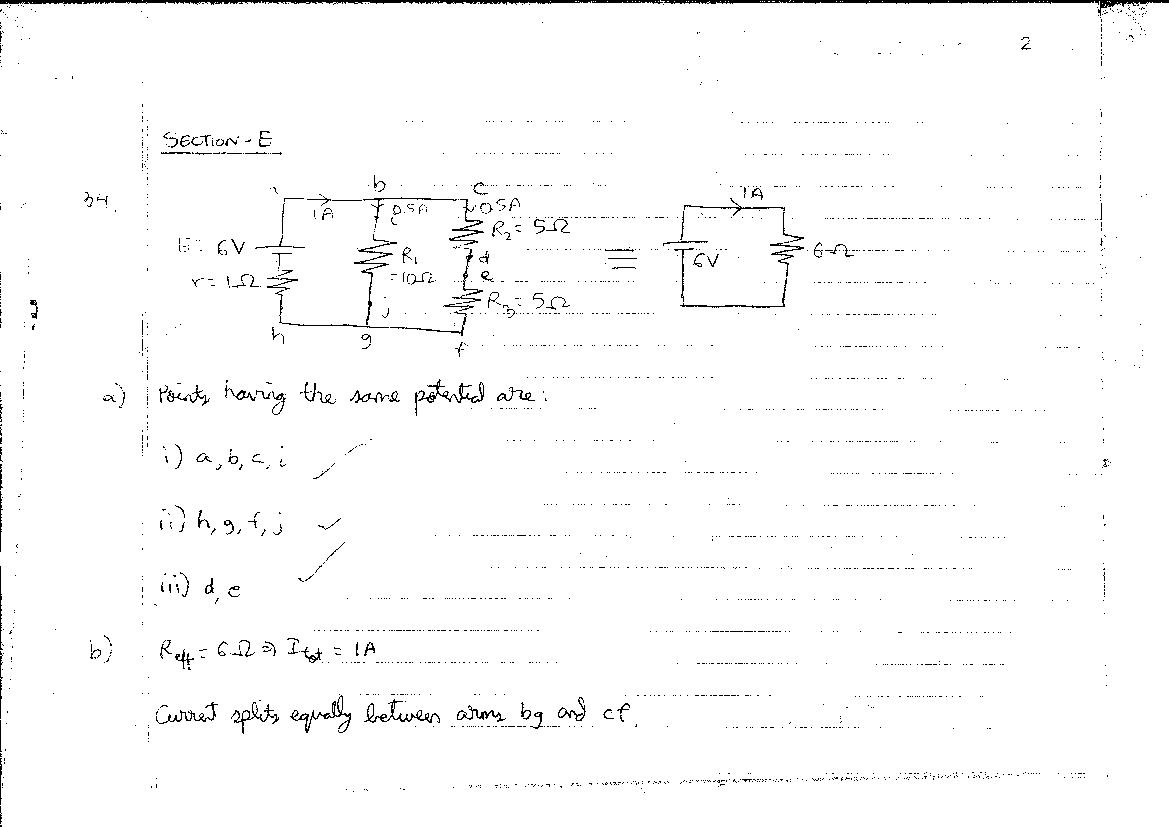 2
SECTION - E
34.
b
c
1A
0.5A
0.5A
i
R₂ = 5Ω
E = 6V
r = 1Ω
R₁
= 10Ω
d
e
j
R₃ = 5Ω
h
g
f
≡
1A
6V
6Ω
a) Points having the same potential are:
i) a, b, c, i ✓
ii) h, g, f, j ✓
iii) d, e ✓
b) R_eff = 6Ω ⇒ I_tot = 1A
Current splits equally between arms bg and cf.